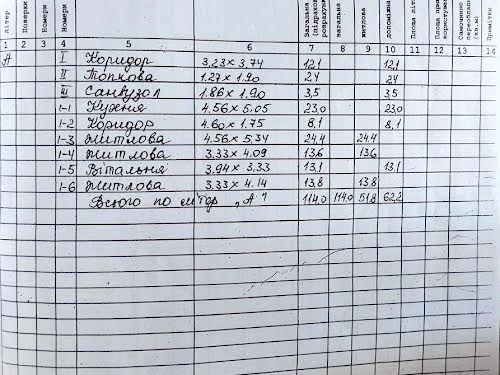 літер
Поверхи
Номери
Номери
Загальна
(підрахо
розрахун
загальна
житлова
допоміжна
Площа літ
Площа
користува
Самочинно
переоблад
(кв.м)
Примітки
1 2 3 4 5 6 7 8 9 10 11 12 13 14
А I Коридор 3.23×3.74 12,1 12,1
II Топкова 1.27×1.90 2,4 2,4
III Санвузол 1.86×1.90 3,5 3,5
1-1 Кухня 4.56×5.05 23,0 23,0
1-2 Коридор 4.60×1.75 8,1 8,1
1-3 Житлова 4.56×5.34 24,4 24.4
1-4 Житлова 3,33×4.09 13,6 13,6
1-5 Вітальня 3.94×3.33 13,1 13,1
1-6 Житлова 3,33×4.14 13,8 13,8
Всього по літер „А" 114,0 114,0 51,8 62,2